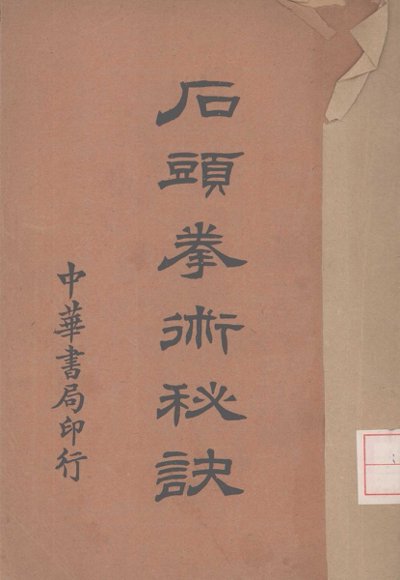 石頭拳術秘訣
中華書局印行